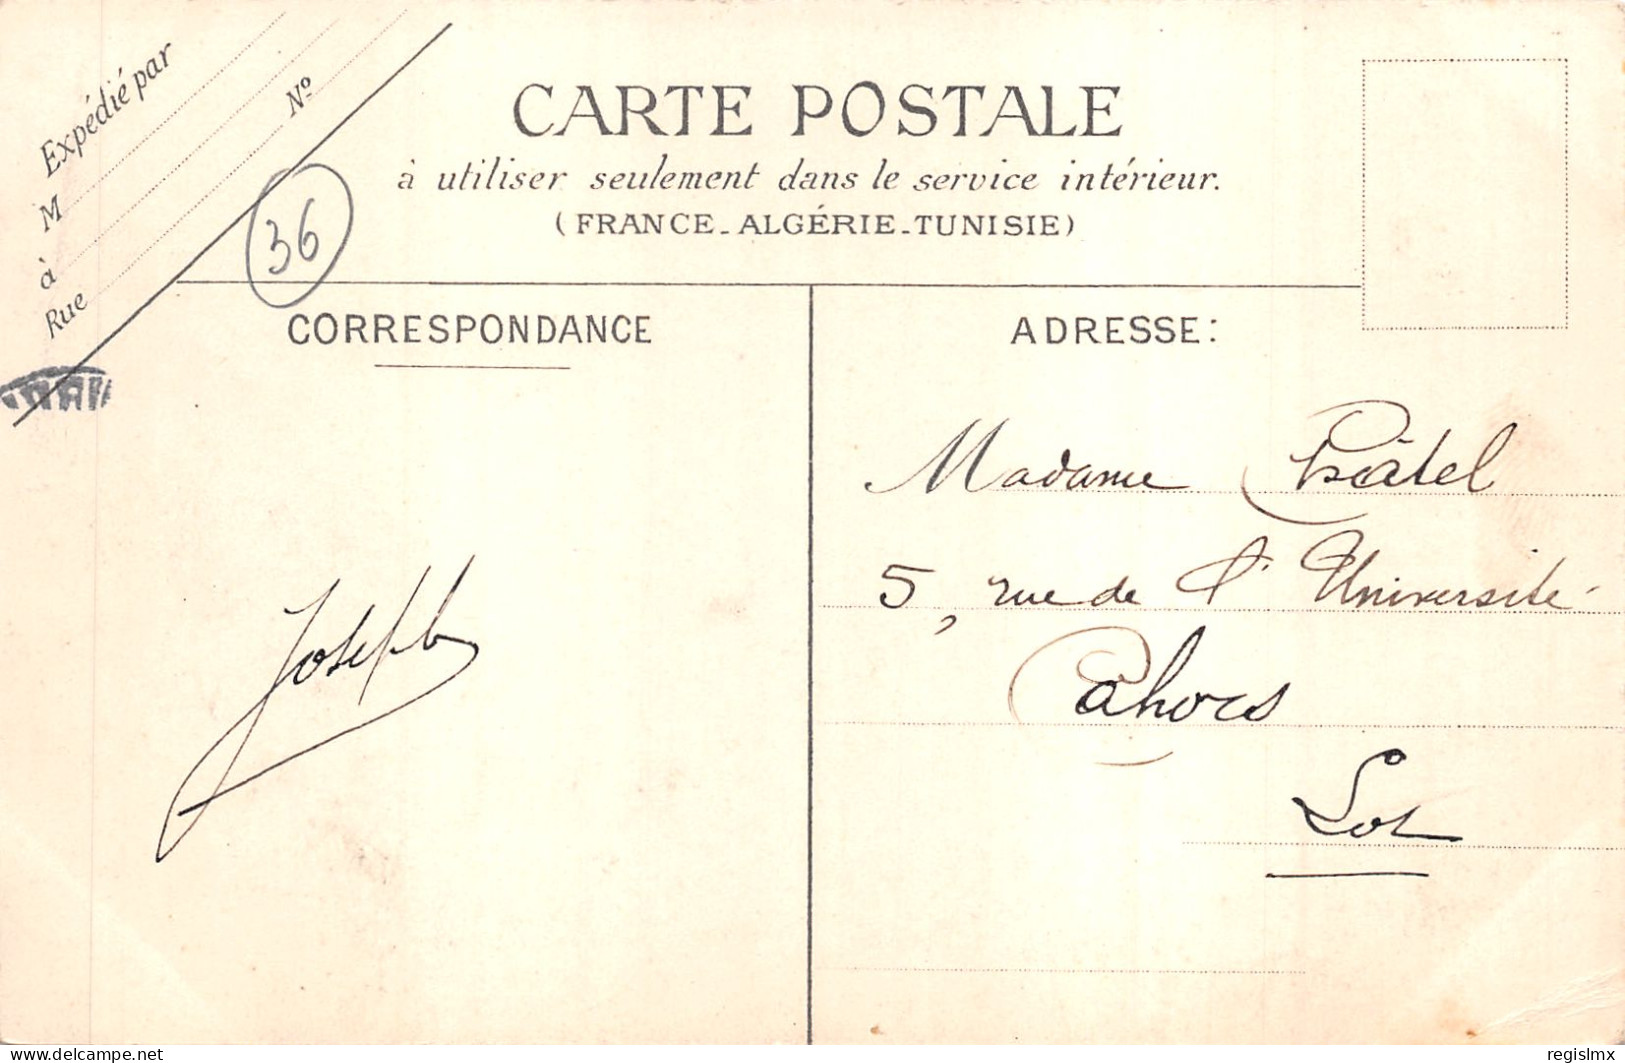 Expédié par
M
à
Rue
Nº
36
CARTE POSTALE
à utiliser seulement dans le service intérieur.
(FRANCE-ALGÉRIE-TUNISIE)
CORRESPONDANCE
ADRESSE:
Madame
5, rue de l'Université
Cahors
Lot
Joseph
delcampe.net
regislmx